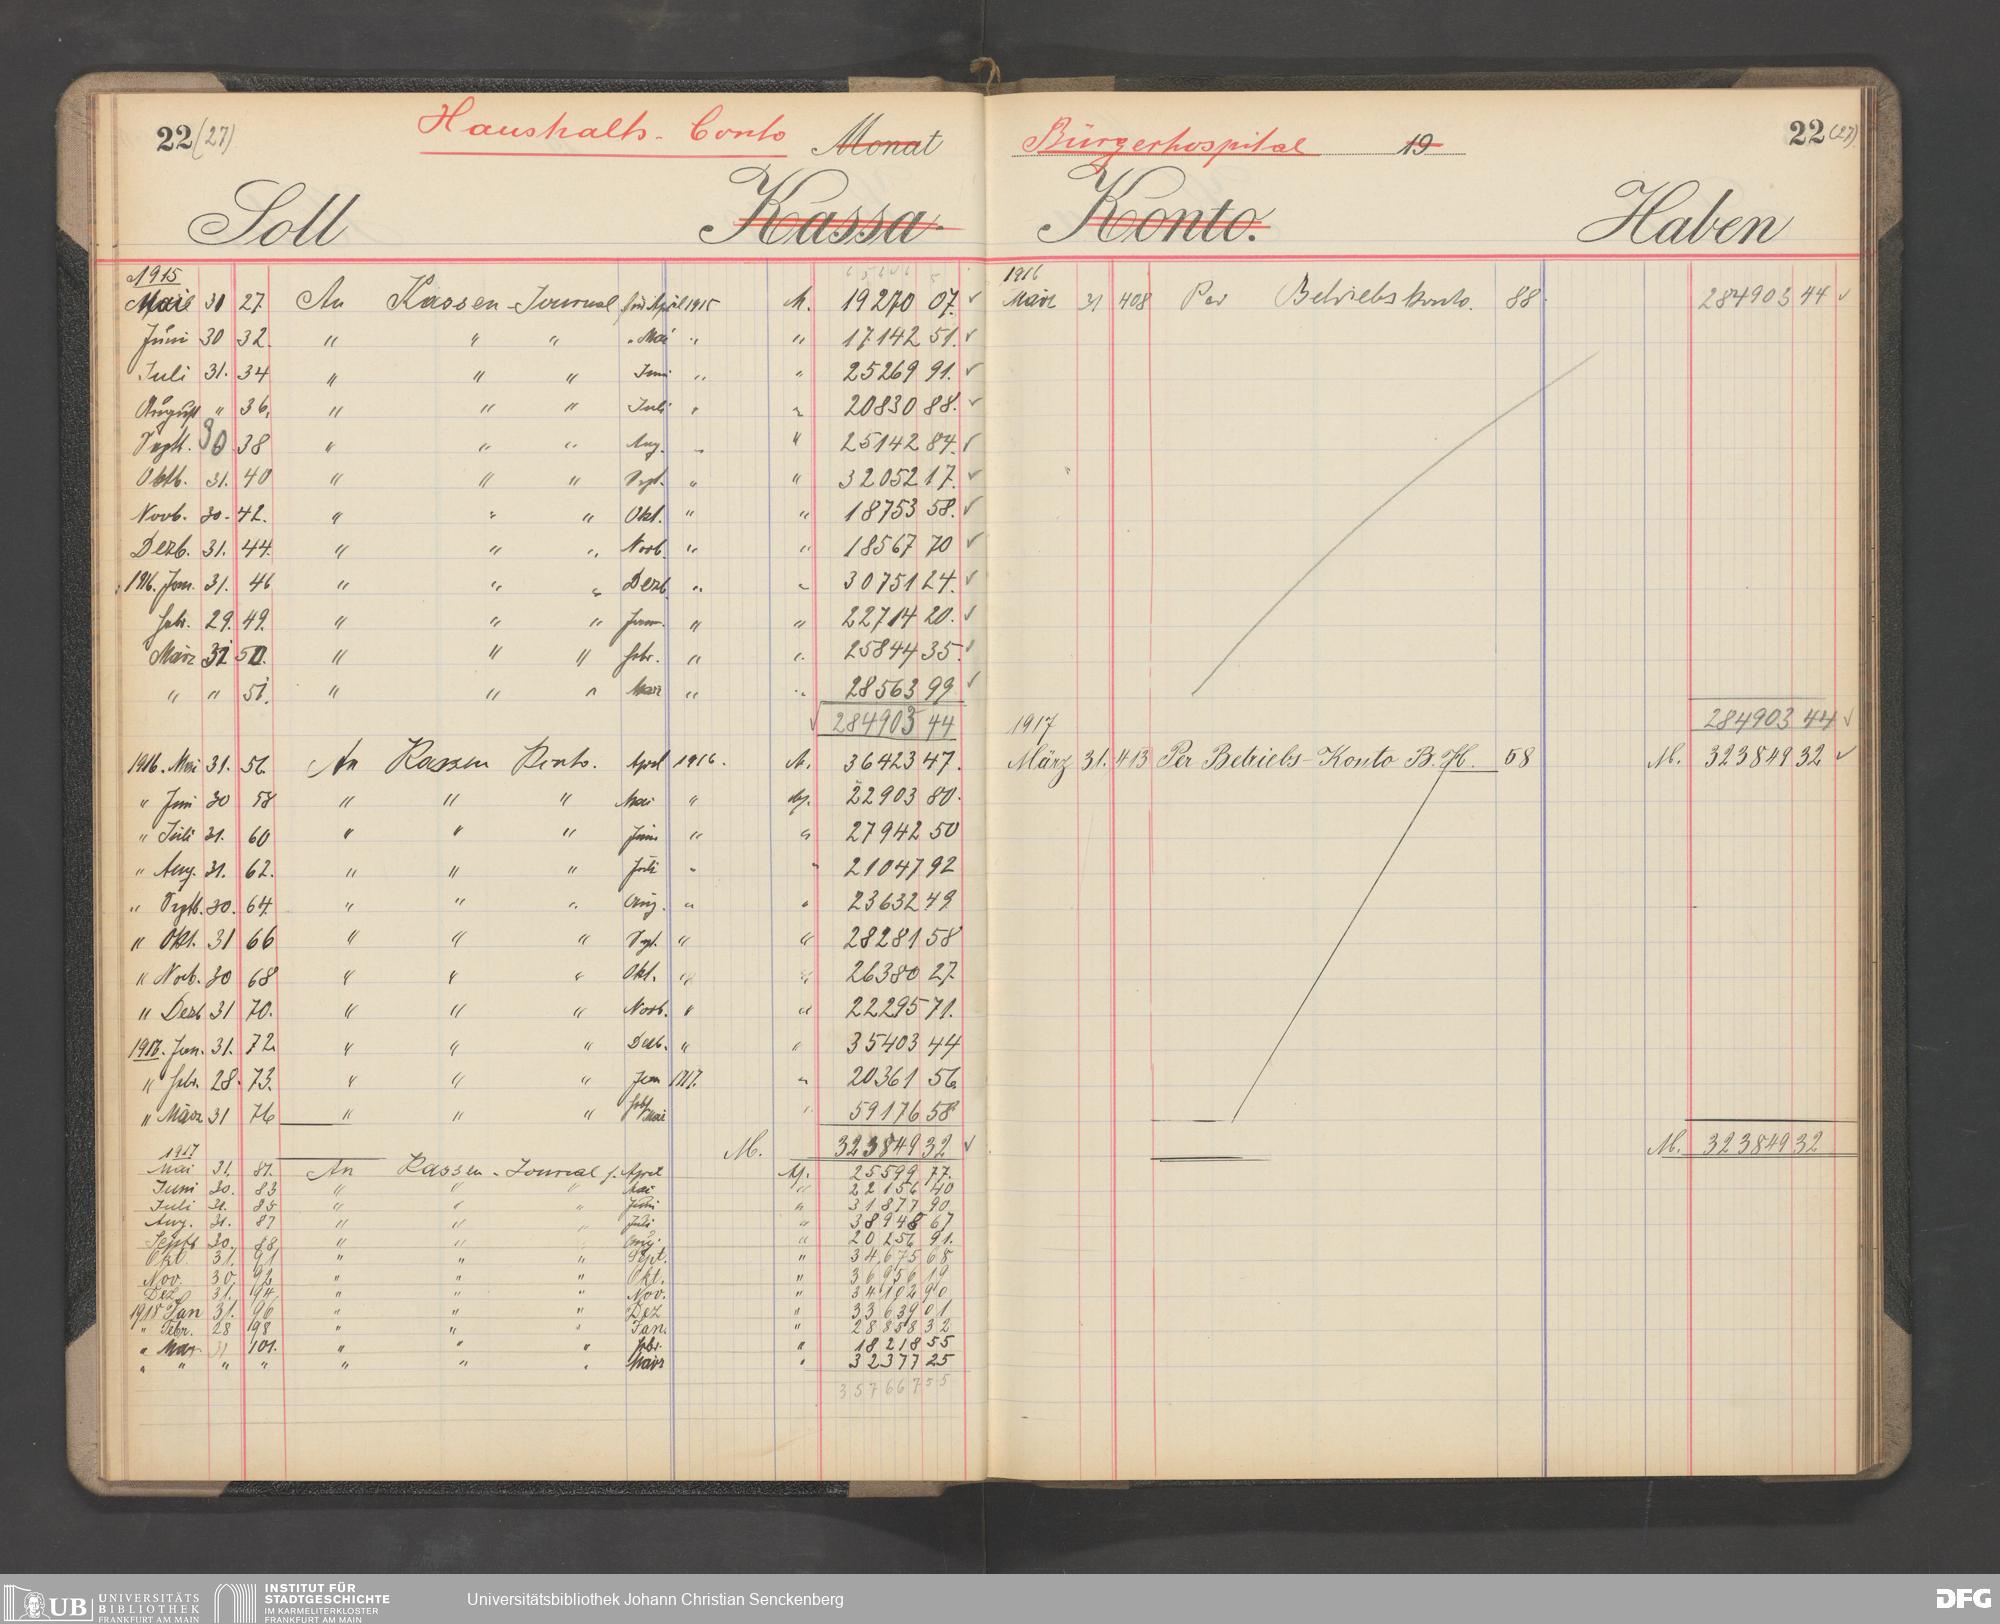 22 (27) Haushalts-Conto Monat
Soll Kassa-
1915
Mai 31 27. An Kassen-Journal für April 1915 M. 19270 07. ✓
Juni 30 32. " " " " Mai " " 17142 51. ✓
Juli 31. 34 " " " Juni " " 25269 91. ✓
August " 36. " " " Juli " " 20830 88. ✓
Septb. 30 38 " " " Aug. " " 25142 84. ✓
Oktb. 31. 40 " " " Sept. " " 32052 17. ✓
Novb. 30. 42. " " " Okt. " " 18753 58. ✓
Dezb. 31. 44. " " " Novb. " " 18567 70 ✓
1916. Jan. 31. 46 " " " Dezb. " " 30751 24. ✓
Febr. 29. 49. " " " Jan. " " 22714 20. ✓
März 31 50. " " " Febr. " " 25844 35. ✓
" " 51. " " " März " " 28563 99 ✓
✓ 284903 44
1916. Mai 31. 56. An Kassen Konto. April 1916. M. 36423 47.
" Juni 30 58 " " " Mai " M. 22903 80.
" Juli 31. 60 " " " Juni " " 27942 50
" Aug. 31. 62. " " " Juli " " 21047 92
" Septb. 30. 64. " " " Aug. " " 23632 49.
" Okt. 31 66 " " " Sept. " " 28281 58
" Novb. 30 68 " " " Okt. " " 26380 27.
" Dezb 31 70. " " " Novb. " " 22295 71.
Jan. 31. 72. " " " Dezb. " " 35403 44
" Febr. 28. 73. " " " Jan 1917. " 20361 56.
" März 31 76 " " " Febr/März " 59176 58
M. 323849 32 ✓
1917
Mai 31. 81. An Kassen-Journal f. April M. 25599 77.
Juni 30. 83 " " " Mai " 22156 40
Juli 31. 85 " " " Juni " 31877 90
Aug. 31. 87 " " " Juli " 38948 67
Septb 30. 88 " " " Aug. " 20256 91.
Okt. 31. 91 " " " Sept. " 34675 68
Nov. 30. 92 " " " Okt. " 36956 19
Dez. 31. 94. " " " Nov. " 34102 90
1918 Jan 31. 96 " " " Dez " 33639 01.
" Febr. 28 98 " " " Jan. " 28858 32
" März 31 101. " " " Febr. " 18218 55
" " " " " " " März " 32377 25
357667 55
Bürgerhospital 19 22 (27)
Konto. Haben
1916
März 31 408 Per Betriebskonto. 88. 284903 44 ✓
284903 44 ✓
1917
März 31. 413 Per Betriebs-Konto B. H. 58 M. 323849 32 ✓
M. 323849 32
UB UNIVERSITÄTS
BIBLIOTHEK
FRANKFURT AM MAIN
INSTITUT FÜR
STADTGESCHICHTE
IM KARMELITERKLOSTER
FRANKFURT AM MAIN
Universitätsbibliothek Johann Christian Senckenberg
DFG